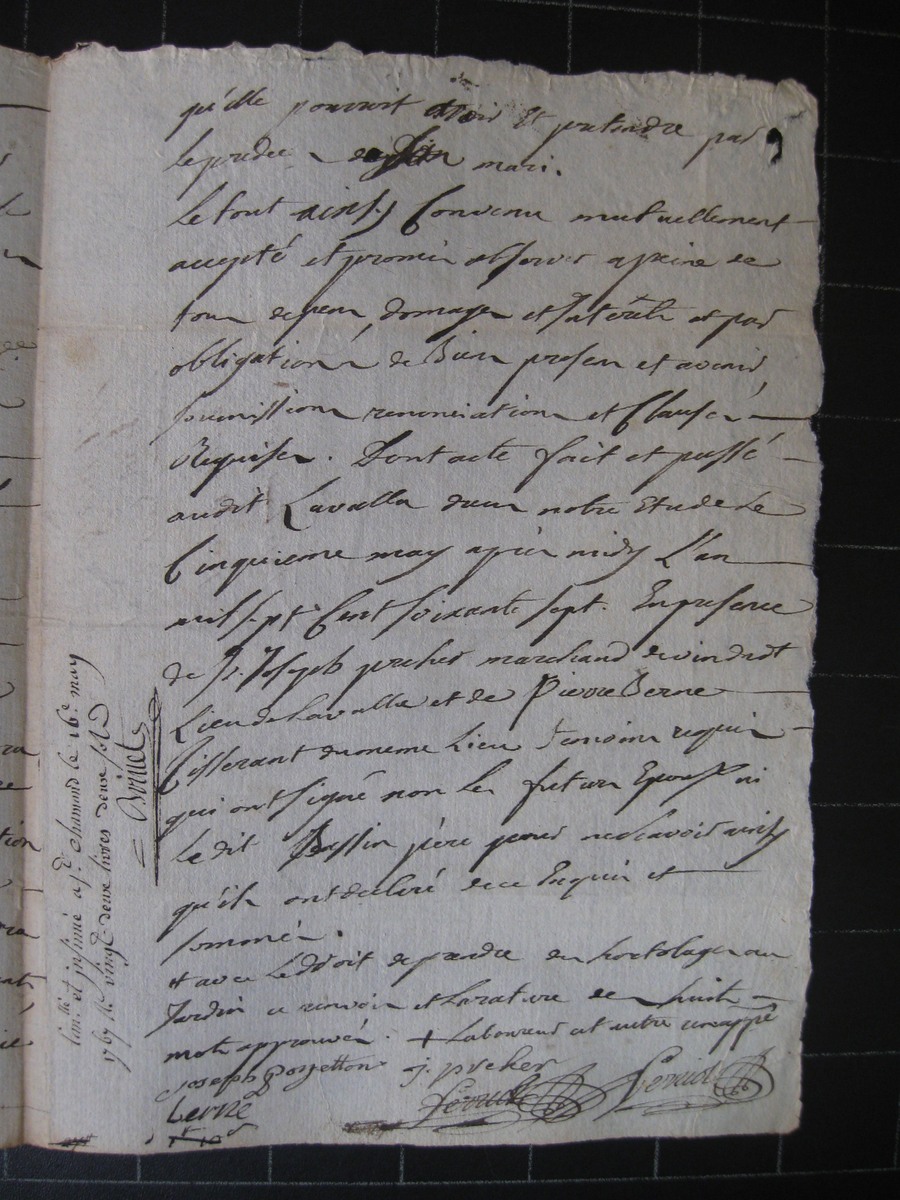 qu'elle pouvoit avoir Et pretendre par
le predec mari.
Le tout ainsy Convenu mutuellement
accepté et promis observer a peine de
tous depens, domages et Interêts et par
obligations de Biens presens et avenir,
soumissions renonciations et Clauses
Requises. Dont acte fait et passé
audit Lavalla dans notre Etude Le
Cinquieme may après midy L'an
mil sept Cent soixante sept. En presence
de Sr. Joseph preher marchand
Lieu de Lavalla et de Pierre Berne
Tisserant du meme Lieu Temoins requis
qui ont signé non les futurs Epoux ni
Le dit Bassin père pour ne scavoir ainsy
qu'ils ont declaré de ce Enquis et
sommés.
+ avec Le Droit de prendre des hortolages au
Jardin ce renvoi et La rature de huit
mots approuvés. + Laboureur cet autre
Joseph j. preher
berne
Con.lé et insinué a St. Chamond le 16e. may
1767 Rs. vingt deux livres deux sols